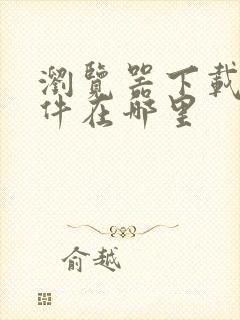 瀏覽器下載
件在哪里
俞越